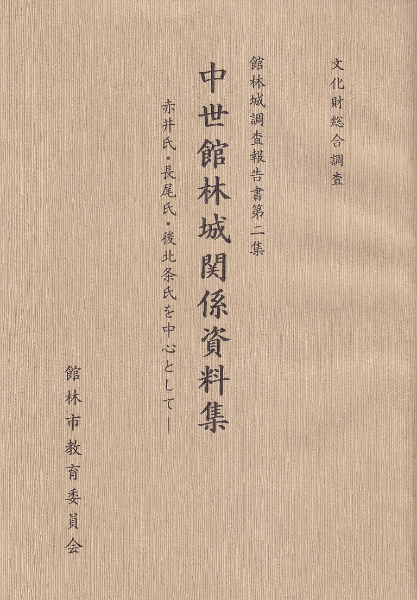 文化財総合調査
館林城調査報告書第二集
中世館林城関係資料集
赤井氏・長尾氏・後北条氏を中心として―
館林市教育委員会